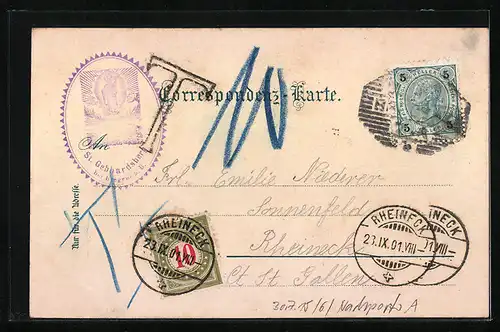 T
10
Correspondenz-Karte.
5 5
5 5
An
St. Gebhardsberg
Frl. Emilie Niederer
Sonnenfeld
Rheineck
Ct St. Gallen
Nur für die Adresse.
RHEINECK
23.IX.01.VIII
10
RHEINECK
23.IX.01.VIII
NECK
01.VIII